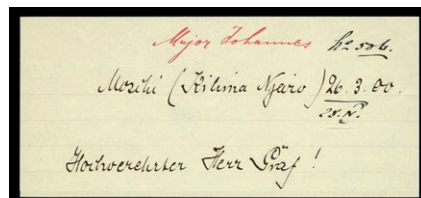 Major Johannes
Moschi (Kilima Njaro) 26. 3. 00.
Hochverehrter Herr Graf!